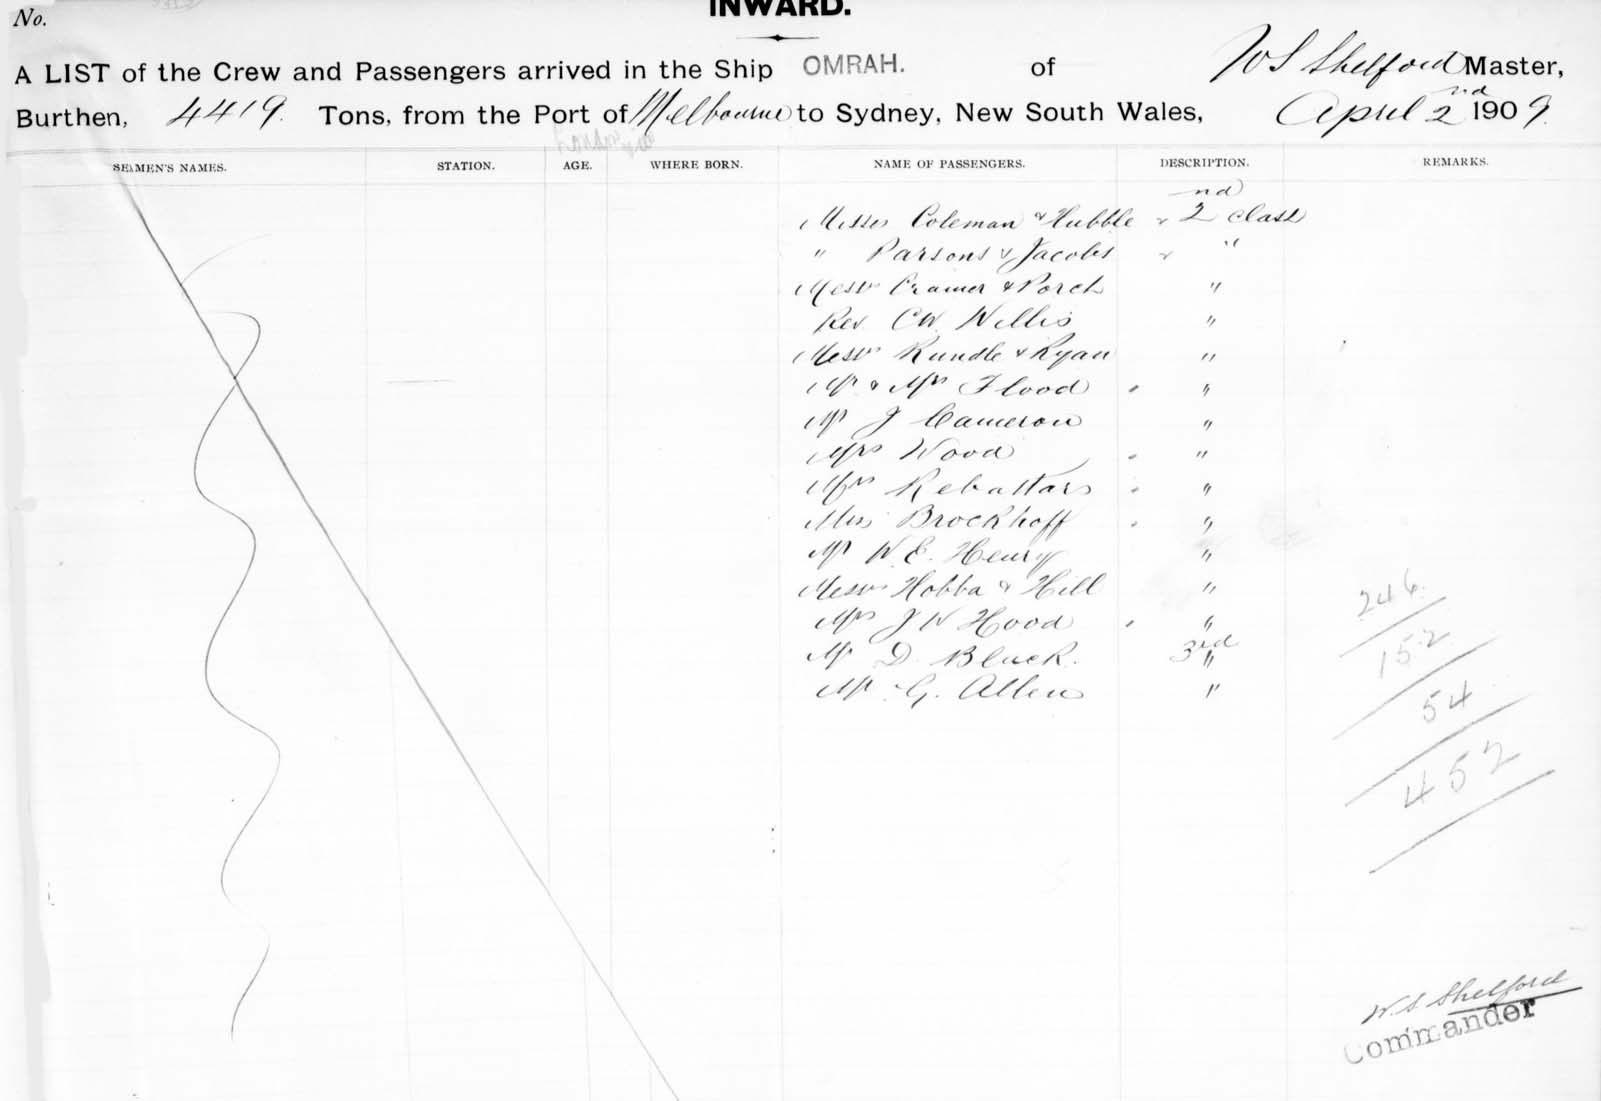 INWARD.
No.
A LIST of the Crew and Passengers arrived in the Ship OMRAH. of W S Shelford Master,
Burthen, 4419. Tons, from the Port of Melbourne to Sydney, New South Wales, April 2nd 1909.
London
SEAMEN'S NAMES. STATION. AGE. WHERE BORN. NAME OF PASSENGERS. DESCRIPTION. REMARKS.
Misses Coleman & Hubble 2nd class
" Parsons & Jacobs "
Messrs Cramer & Porch "
Rev. C W. Willis "
Messrs Rundle & Ryan "
Mr & Mrs Flood "
Mr J Cameron "
Mrs Wood "
Mrs "
Miss Brockhoff "
Mr W. E. Henry "
Messrs Hobba & Hill "
Mrs J W Hood "
Mr D. Black. 3rd "
Mr G. Allen "
246
152
54
452
W. S. Shelford
Commander